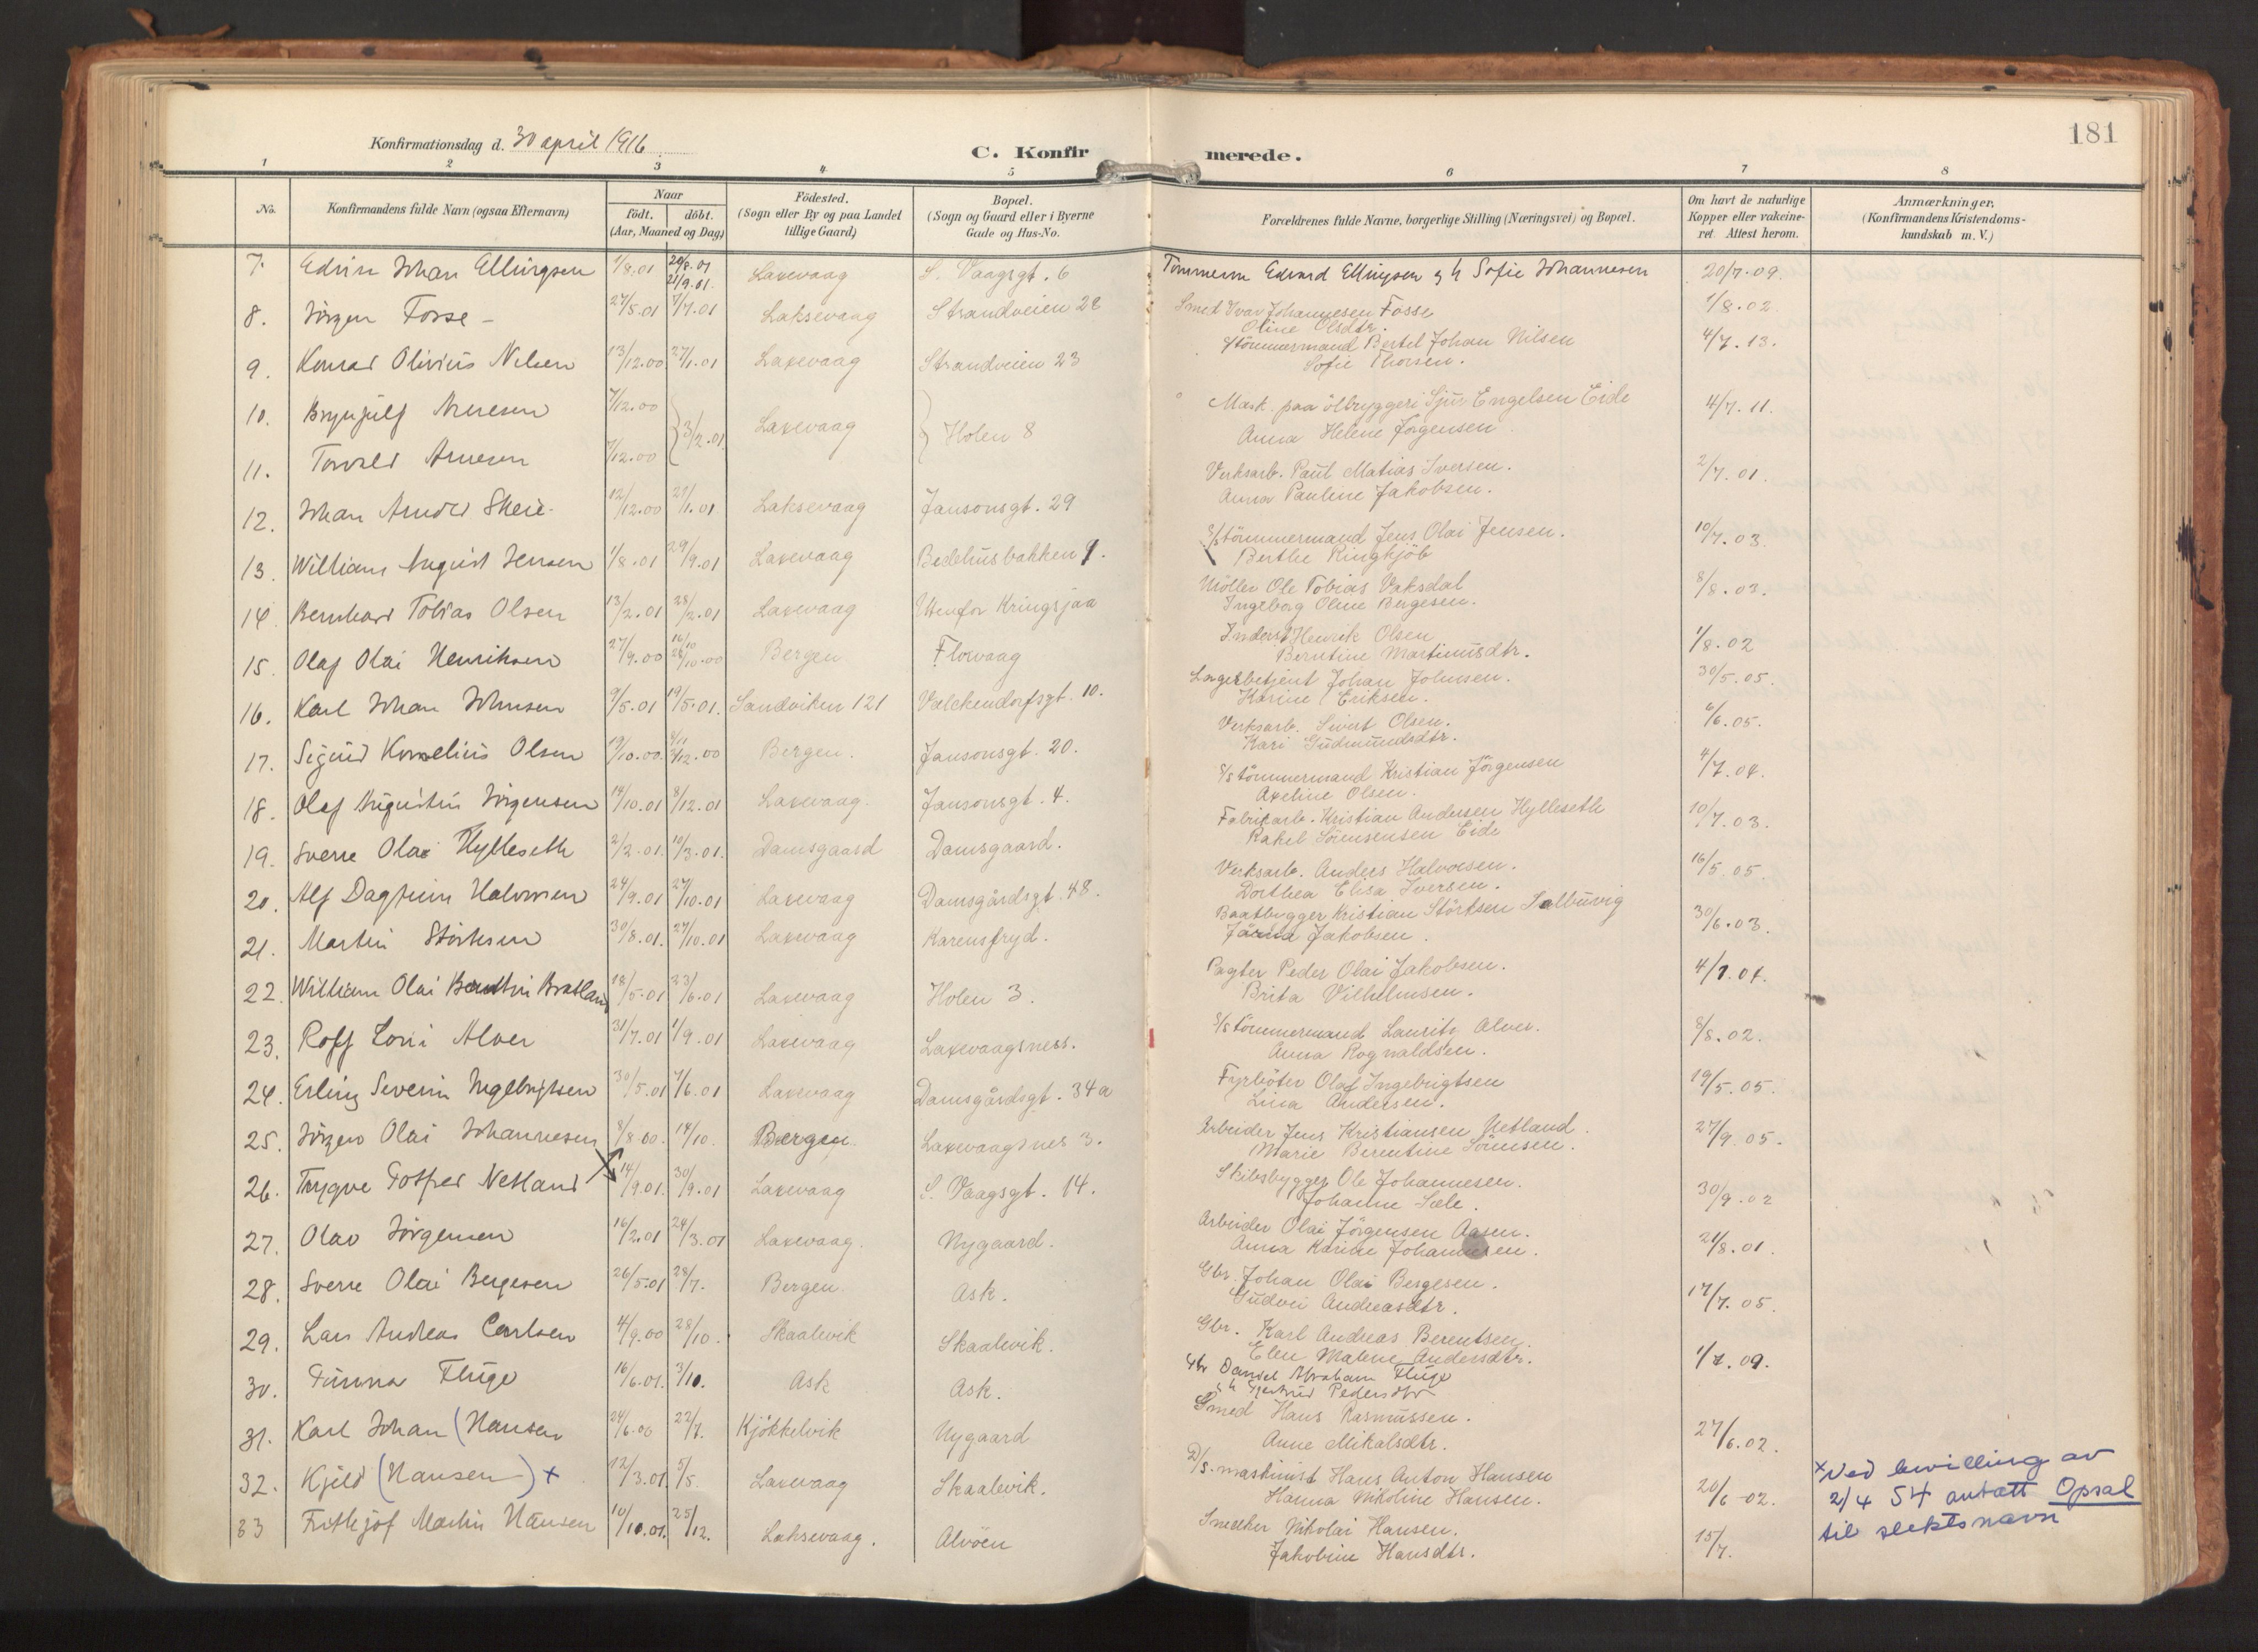 Konfirmationsdag d. 30 april 1916.
C. Konfirmerede.
181
1 2 3 4 5 6 7 8
No.
Konfirmandens fulde Navn (ogsaa Efternavn)
Naar
födt. döbt.
(Aar, Maaned og Dag)
Födested.
(Sogn eller By og paa Landet
tillige Gaard)
Bopæl.
(Sogn og Gaard eller i Byerne
Gade og Hus-No.
Forældrenes fulde Navne, borgerlige Stilling (Næringsvei) og Bopæl.
Om havt de naturlige
Kopper eller vakcine-
ret Attest herom.
Anmærkninger.
(Konfirmandens Kristendoms-
kundskab m. V.)
7. Edvin Johan Ellingsen 1/8.01 20/8.01 21/9.01. Laxevaag S. Vaagsgt. 6 Tömmerm Edvard Ellingsen og h Sofie Johannesen 20/7.09.
8. Jörgen Fosse - 27/5.01 7/7.01 Laksevaag Strandveien 28 Smed Ivar Johannesen Fosse
Oline Olsdtr. 1/8.02.
9. Konrad Olivius Nilsen 13/12.00 27/1.01 Laxevaag Strandveien 23 Stömmermand Bertel Johan Nilsen
Sofie Thorsen. 4/7.13.
10. Brynjulf Arnesen 7/12.00 } 3/2.01 Laxevaag } Holen 8 Mask. paa ölbryggeri Sjur Engelsen Eide
Anna Helene Jörgensen 4/7.11.
11. Torvald Arnesen 7/12.00
12. Johan Arnold Skeie. 12/12.00 21/1.01 Laksevaag Jansonsgt. 29 Verksarb. Paul Matias Iversen.
Anna Pauline Jakobsen. 2/7.01.
13. William August Jensen 1/8.01 29/9.01 Laxevaag Bedehusbakken 9. S/stömmermand Jens Olai Jensen.
Berthe Ringkjöb 10/7.03.
14. Bernhard Tobias Olsen 13/2.01 28/2.01 Laxevaag Utenfor Kringsjaa Möller Ole Tobias Vaksdal
Ingeborg Oline Bergesen. 8/8.03.
15. Olaf Olai Henriksen 27/9.00 16/10 26/10.00 Bergen Florvaag Inderst Henrik Olsen
Berntine Martinusdtr. 1/8.02
16. Karl Johan Johnsen 9/5.01 19/5.01. Sandviken 121 Valckendorfsgt. 10. Lagerbetjent Johan Johnsen.
Karine Eriksen. 30/5.05.
17. Sigurd Kornelius Olsen 19/10.00. 8/11 3/12.00 Bergen. Jansonsgt. 20. Verksarb. Sivert Olsen.
Kari Gudmundsdtr. 6/6.05.
18. Olaf Augustin Jörgensen 14/10.01 8/12.01 Laxevaag. Jansonsgt. 4. S/stömmermand Kristian Jörgensen
Axeline Olsen. 4/7.04.
19. Sverre Olai Hylleseth 2/2.01. 10/3.01. Damsgaard Damsgaard. Fabrikarb. Kristian Andersen Hylleseth
Rakel Sörensensen Eide 10/7.03.
20. Alf Dagfinn Halvorsen 24/9.01 27/10.01 Laxevaag Damsgårdsgt. 48. Verksarb. Anders Halvorsen.
Dorthea Elisa Iversen. 16/5.05.
21. Martin Störksen 30/8.01. 27/10.01 Laxevaag Karensfryd. Baatbygger Kristian Störksen Salbuvig
Jakobsen. 30/6.03.
22. William Olai Bratland 18/5.01 23/6.01 Laxevaag Holen 3. Pagter Peder Olai Jakobsen.
Brita Vilhelmsen. 4/7.04.
23. Rolf Alver 31/7.01 1/9.01 Laxevaag Laxevaagsness. S/stömmermand Lauritz Alver.
Anna Rognaldsen. 8/8.02.
24. Erling Severin Ingebrigtsen 30/5.01 7/6.01 Laxevaag Damsgårdsgt. 34a Fyrböter Olaf Ingebrigtsen
Lina Andersen. 19/5.05.
25. Jörgen Olai Johannesen 8/8.00. 14/10. Bergen. Laxevaagsnes 3. Arbeider Jens Kristiansen Netland.
Marie Berentine Sörensen. 27/9.05.
26. Trygve Gotfred Netland 14/9.01. 30/9.01 Laxevaag S. Vaagsgt. 14. Skibsbygger Ole Johannesen.
Johanne Sæle. 30/9.02
27. Olav Jörgensen 16/2.01 24/3.01 Laxevaag. Nygaard. Arbeider Olai Jörgensen Aasen.
Anna Karine Johannesen. 21/8.01.
28. Sverre Olai Bergesen 26/5.01 28/7. Bergen. Ask. Gbr. Johan Olai Bergesen.
Gudvei Andreasdtr. 17/7.05.
29. Lars Andreas Carlsen 4/9.00 28/10. Skaalevik Skaalevik. Gbr. Karl Andreas Berentsen.
Elen Malene Andersdtr. 1/7.09.
30. Gunnar Fluge 16/6.01. 3/10. Ask Ask. Gbr Daniel Abraham Fluge
g h Gjertrud Pedersdtr
31. Karl Johan (Hansen 24/6.00 22/7. Kjökkelvik Nygaard Smed Hans Rasmussen.
Anne Mikalsdtr. 27/6.02.
32. Kjeld (Hansen) + 12/3.01 5/5. Laxevaag Skaalevik. D/s. maskinist Hans Anton Hansen
Hanna Nikoline Hansen. 20/6-02. x Ved bevilling av
2/4 54 antatt Opsal
til slektsnavn
33 Frithjof Martin Hansen 10/10.01. 25/12. Laksevaag. Alvöen Smelter Nikolai Hansen.
Jakobine Hansdtr. 15/7.